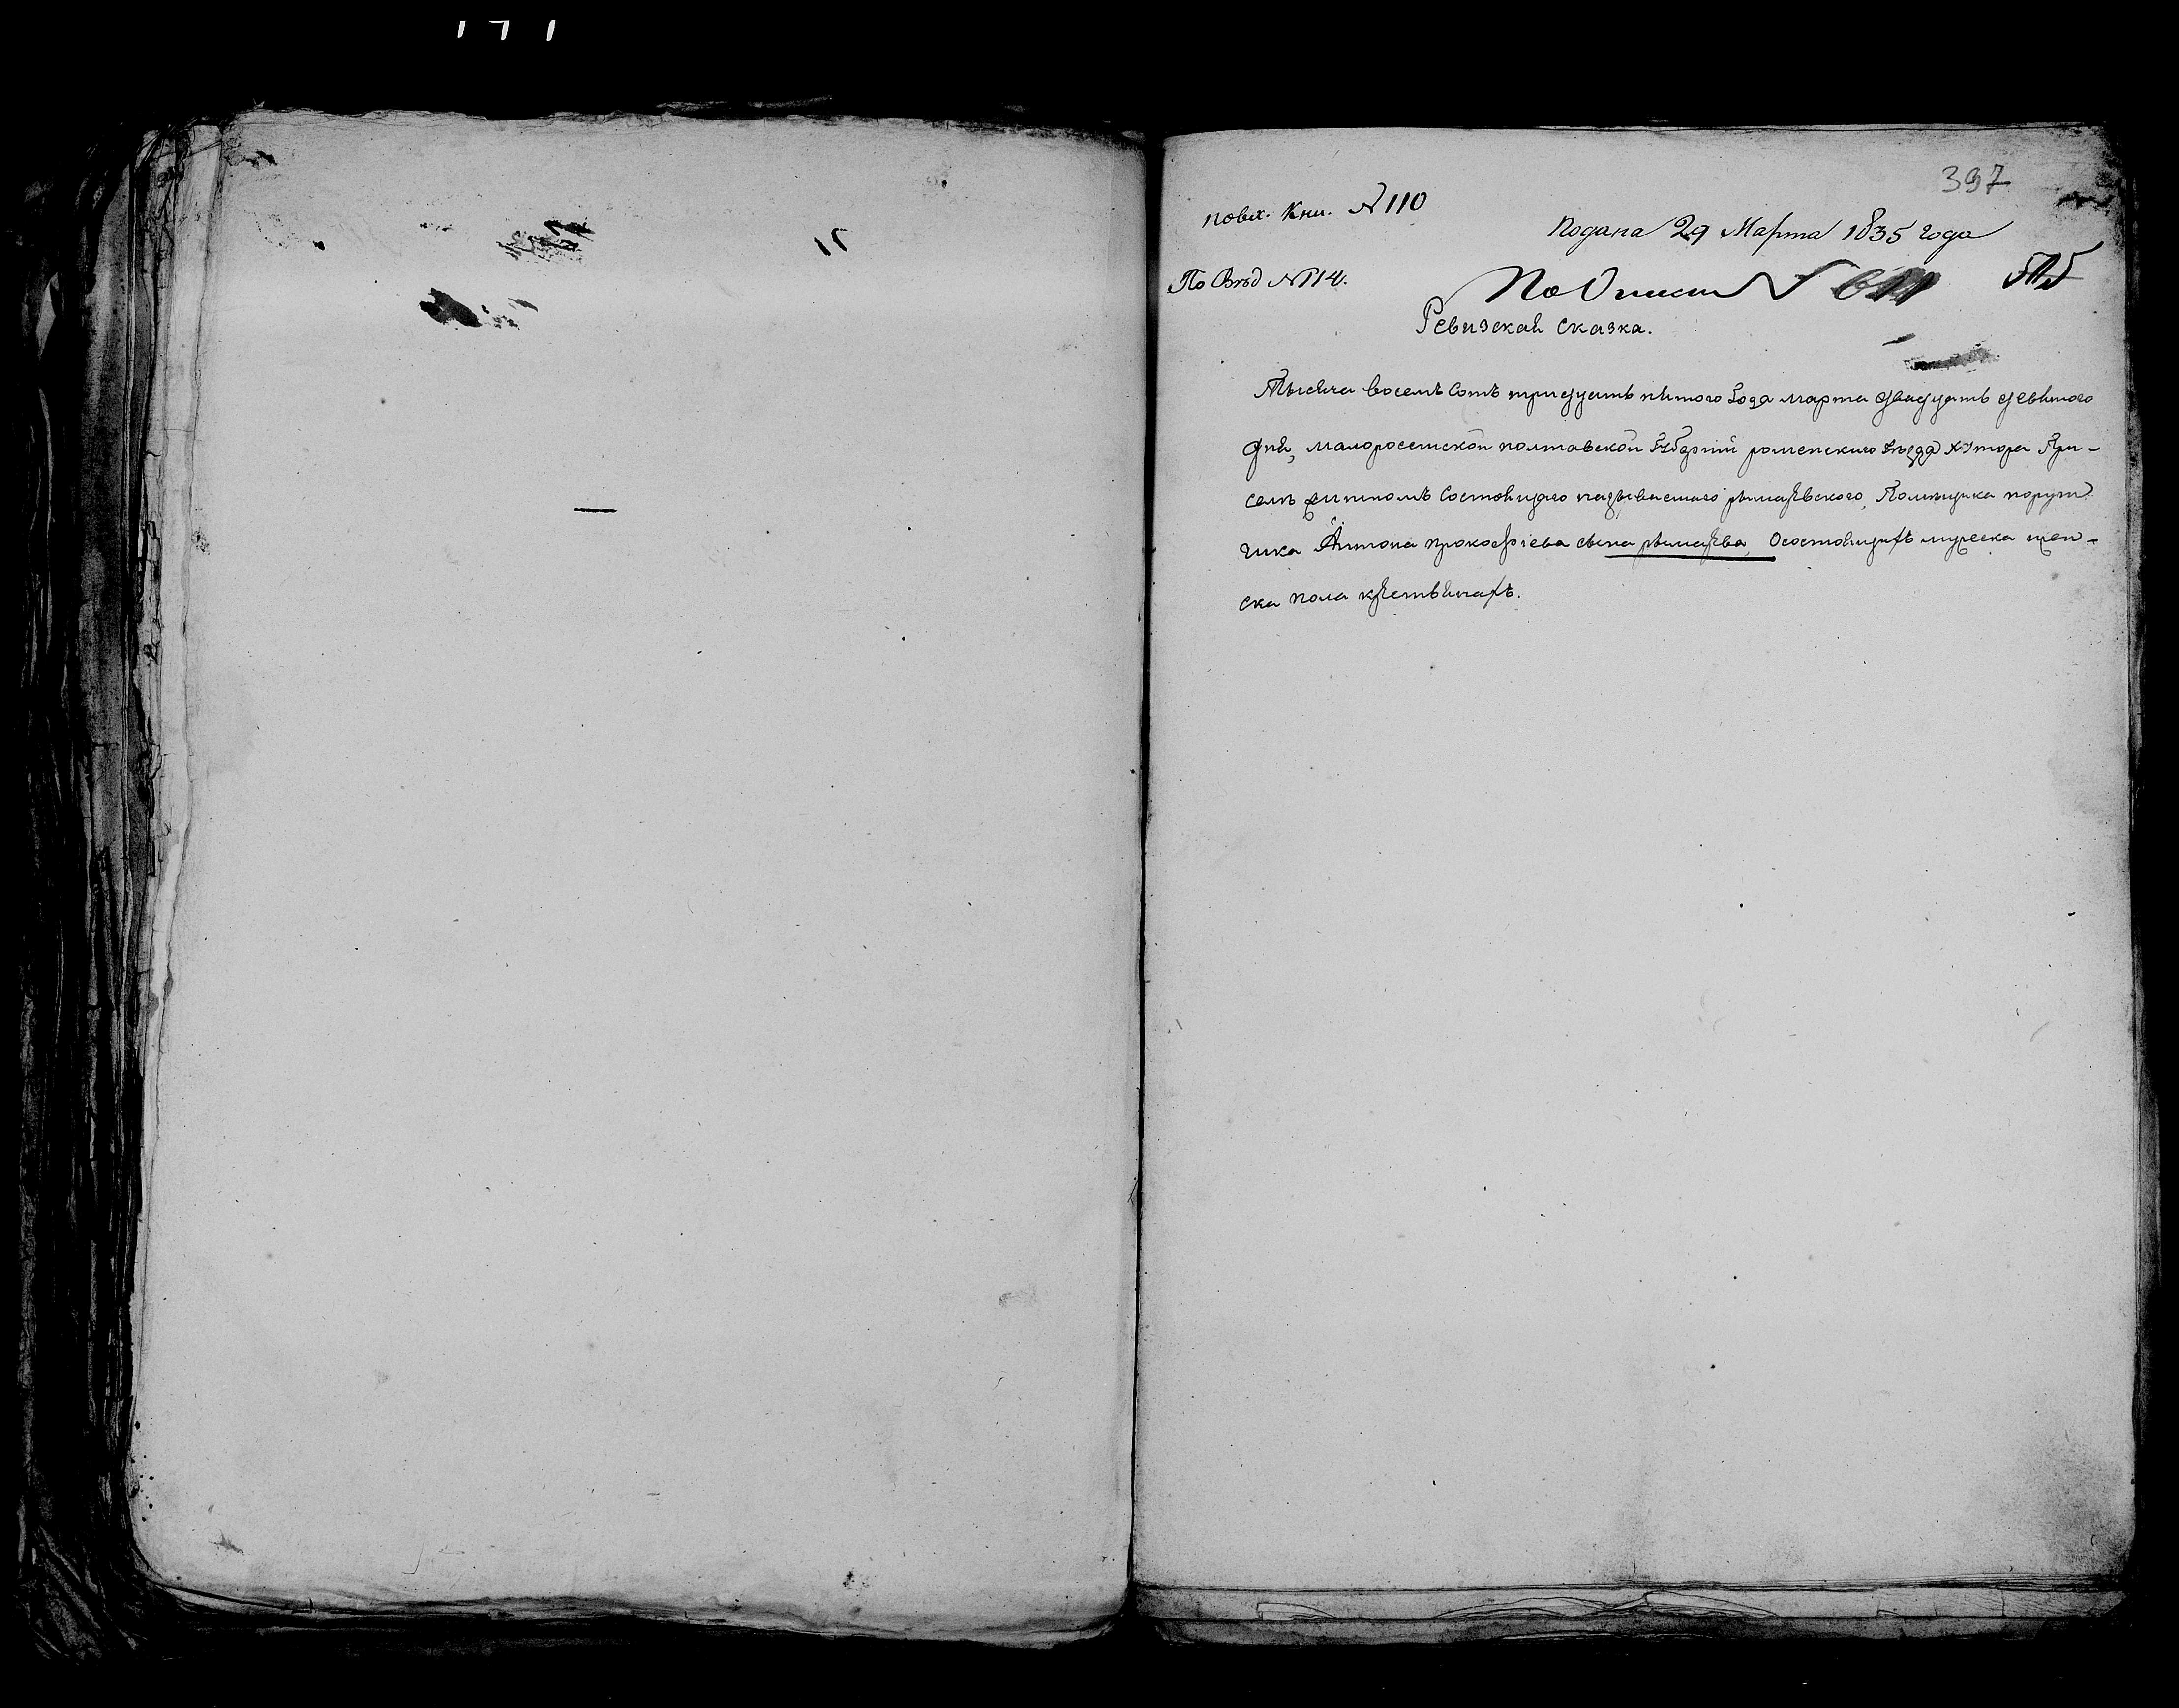 397
по вх. Кни. № 110
Подана 29 Марта 1835 года
По Вѣд № 114.
По Описи № 515
Ревизская сказка.
Тысяча восемъ сотъ тридцать пятого года марта двадцать девятого
дня, малоросейской полтавской губернии роменского уѣзда хутора При
селѣ состоящаго называемаго рымаревского, Помѣщика порут
чика Антона прокофиева сына рымарева, О состоящихъ мужеска жен-
ска пола крестьянахъ.